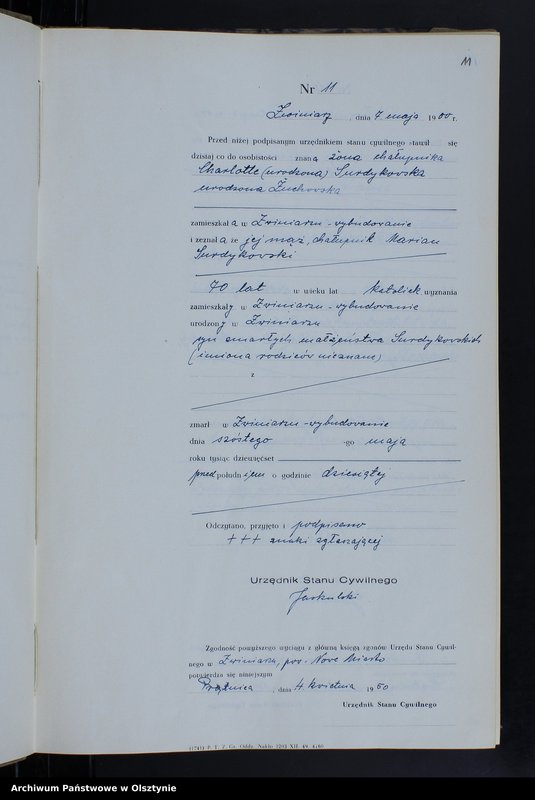 11
Nr 11
Zwiniarz, dnia 7 maja 1900 r.
Przed niżej podpisanym urzędnikiem stanu cywilnego stawił się
dzisiaj co do osobistości znana żona chałupnika
Charlotte (urodzona) Surdykowska
urodzona Żuchowska
zamieszkała w Zwiniarzu - wybudowanie
i zeznała że jej mąż, chałupnik Marian
Surdykowski
70 lat w wieku lat katolick. wyznania
zamieszkały w Zwiniarzu - wybudowanie
urodzony w Zwiniarzu
syn zmarłych małżeństwa Surdykowskich
(imiona rodziców nieznane)
z
zmarł w Zwiniarzu - wybudowanie
dnia szóstego -go maja
roku tysiąc dziewięćset
przedpołudniem o godzinie dziesiątej
Odczytano, przyjęto i podpisano
+++ znaki zgłaszającej
Urzędnik Stanu Cywilnego
Jaskulski
Zgodność powyższego wyciągu z główną księgą zgonów Urzędu Stanu Cywil-
nego w Zwiniarzu, pow. Nowe Miasto
potwierdza się niniejszym
Prątnica, dnia 4 kwietnia 1950
Urzędnik Stanu Cywilnego
(1741) P. T. Z. Gr. Oddz. Nakło 2203 XII. 49
Archiwum Państwowe w Olsztynie